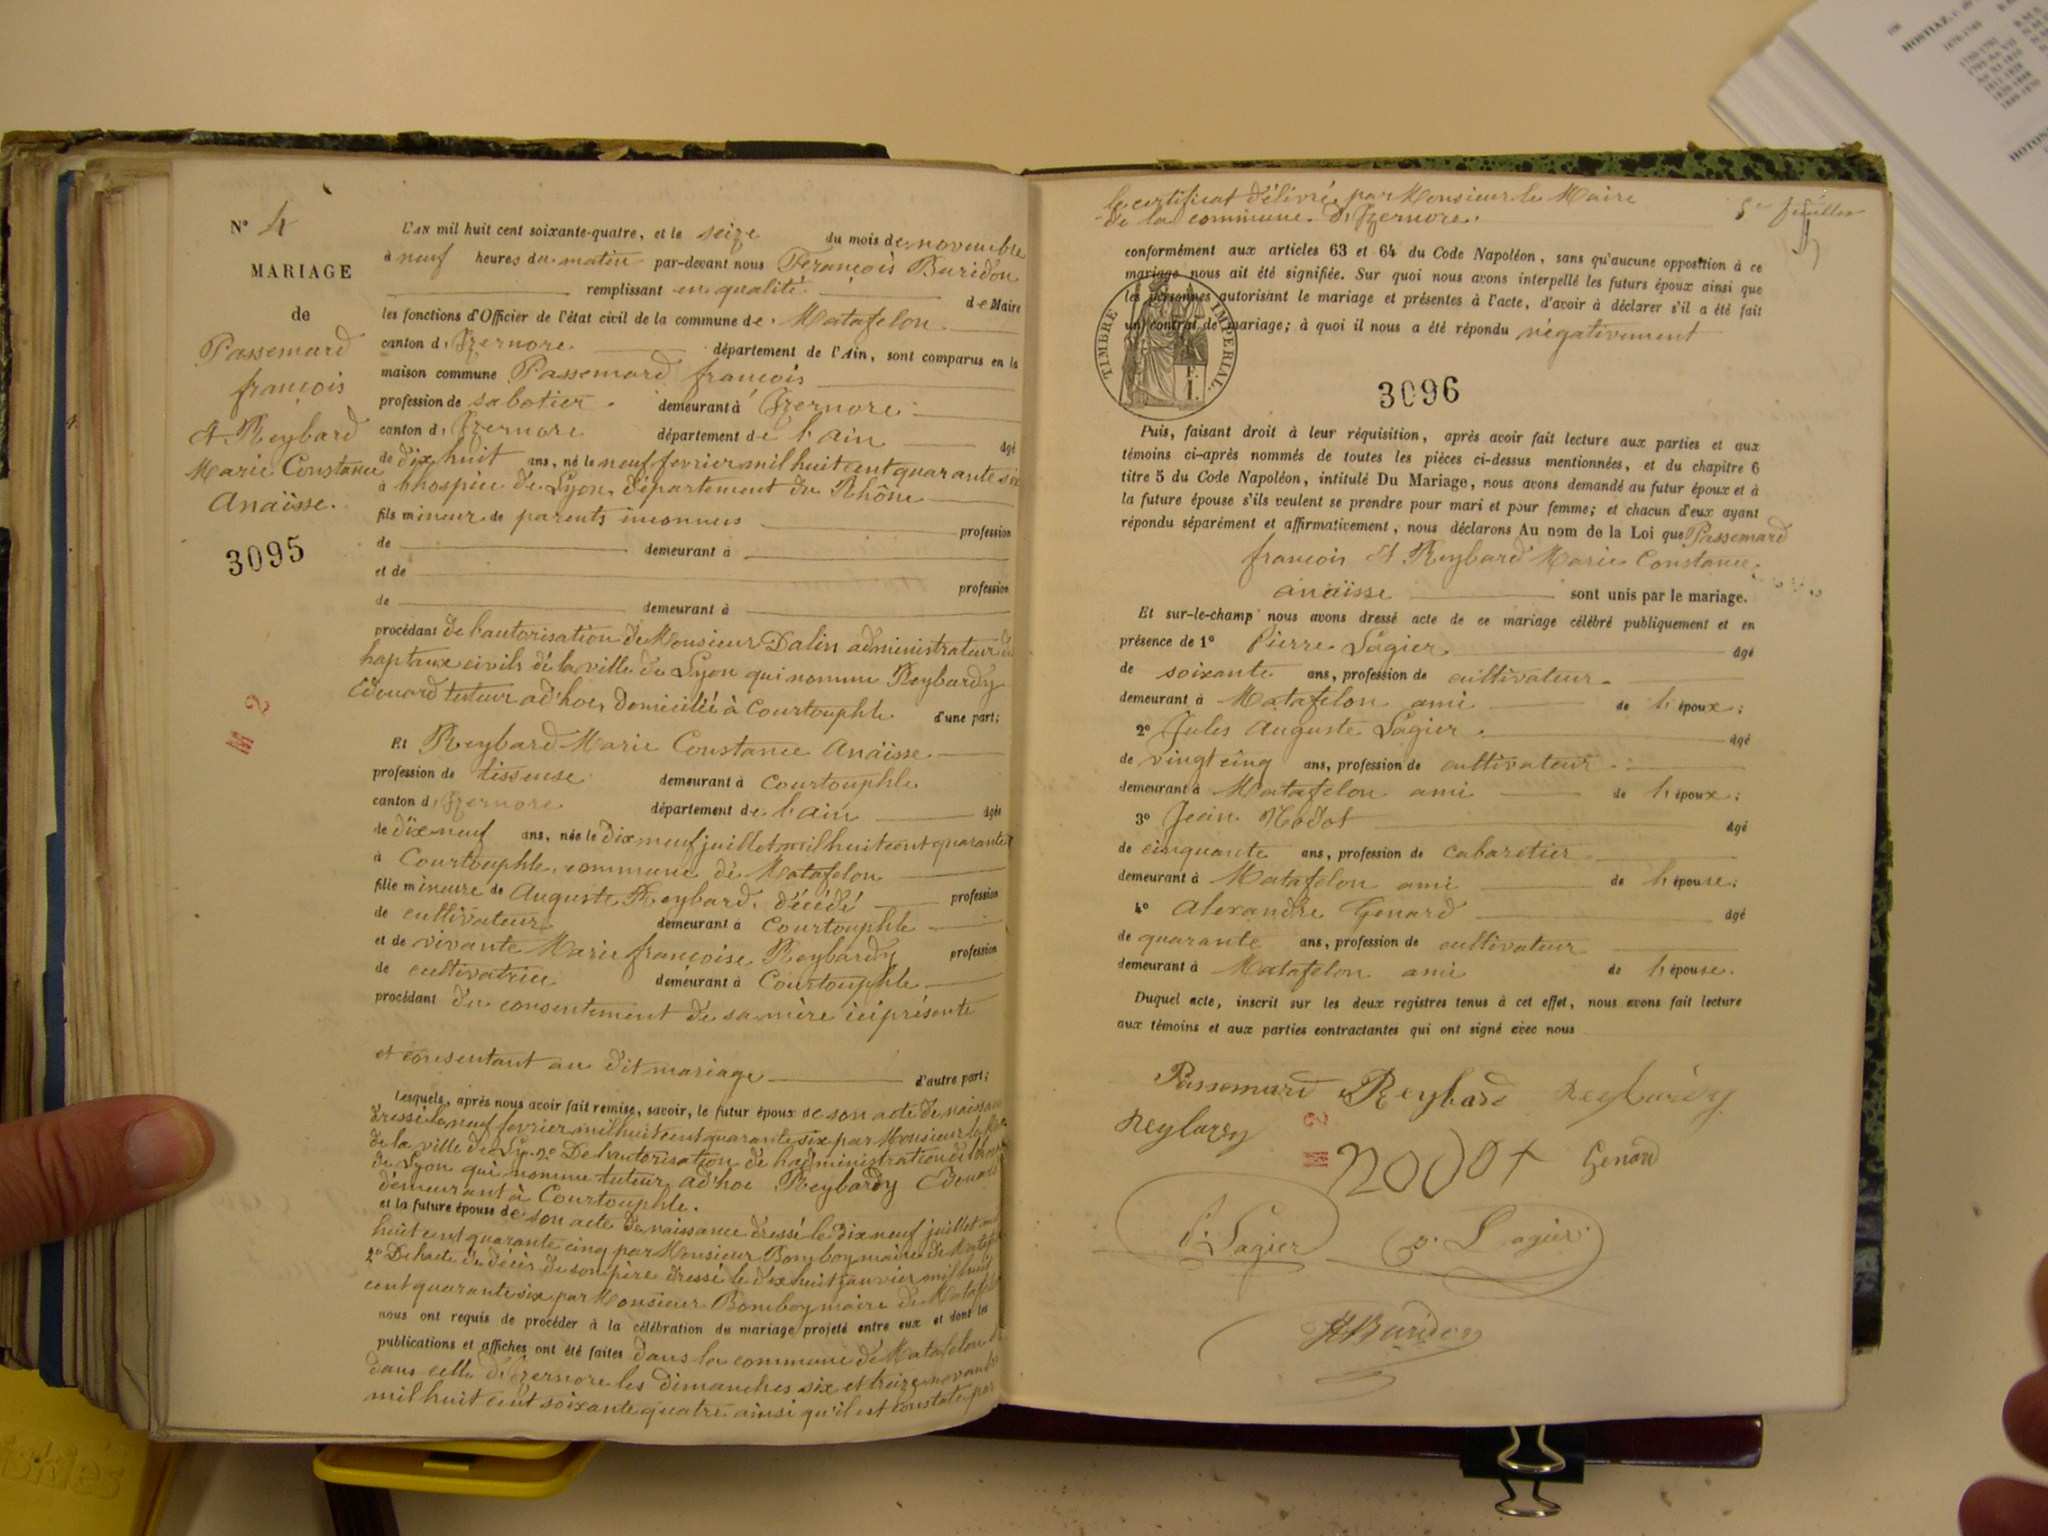 N° 4
MARIAGE
de
Passemard
françois
Et Reybard
Marie Constance
Anaïsse.
3095
M 2
L'AN mil huit cent soixante-quatre, et le seize du mois de novembre
à neuf heures du matin par-devant nous François Buridon
remplissant en qualité de Maire
les fonctions d'Officier de l'état civil de la commune de Matafelon
canton d'Izernore département de l'Ain, sont comparus en la
maison commune Passemard françois
profession de sabotier. demeurant à Izernore
canton d'Izernore département de l'ain âgé
de dix huit ans, né le neuf fevrier mil huit cent quarante six
à l'hospice de Lyon, département du Rhône
fils mineur de parents inconnus profession
de demeurant à
et de profession
de demeurant à
procédant de l'autorisation de Monsieur Dalin administrateur
hopitaux civils de la ville de Lyon qui nomme Reybardy
Edouard tuteur ad'hoc, domicilié à Courtouphle d'une part;
Et Reybard Marie Constance Anaïsse
profession de tisseuse demeurant à Courtouphle
canton d'Izernore département de l'ain âgée
de dix neuf ans, née le dix neuf juillet mil huit cent quarante
à Courtouphle, commune de Matafelon
fille mineure de Auguste Reybard, décédé profession
de cultivateur demeurant à Courtouphle
et de vivante Marie françoise Reybardy profession
de cultivatrice demeurant à Courtouphle
procédant du consentement de sa mère ici présente
et consentant au dit mariage d'autre part;
Lesquels, après nous avoir fait remise, savoir, le futur époux de son acte de naissance
dressé le neuf fevrier mil huit cent quarante six par Monsieur le
de la ville de Ly. 2° De l'autorisation de l'administration de
de Lyon qui nomme tuteur ad'hoc Reybardy Edouard
demeurant à Courtouphle.
et la future épouse de son acte de naissance dressé le dix neuf juillet mil
huit cent quarante cinq par Monsieur Bomboy maire de
2° De l'acte de décès de son père dressé le dix huit janvier mil huit
cent quarante six par Monsieur Bomboy maire de
nous ont requis de procéder à la célébration du mariage projeté entre eux et dont les
publications et affiches ont été faites dans la commune de Matafelon
dans celle d'Izernore les dimanches six et treize novembre
mil huit cent soixante quatre ainsi qu'il est constaté par
le certificat délivré par Monsieur le Maire
de la commune d'Izernore.
5e feuillet
conformément aux articles 63 et 64 du Code Napoléon, sans qu'aucune opposition à ce
mariage nous ait été signifiée. Sur quoi nous avons interpellé les futurs époux ainsi que
les personnes autorisant le mariage et présentes à l'acte, d'avoir à déclarer s'il a été fait
un contrat de mariage; à quoi il nous a été répondu négativement
TIMBRE IMPERIAL.
3096
Puis, faisant droit à leur réquisition, après avoir fait lecture aux parties et aux
témoins ci-après nommés de toutes les pièces ci-dessus mentionnées, et du chapitre 6
titre 5 du Code Napoléon, intitulé Du Mariage, nous avons demandé au futur époux et à
la future épouse s'ils veulent se prendre pour mari et pour femme; et chacun d'eux ayant
répondu séparément et affirmativement, nous déclarons Au nom de la Loi que Passemard
françois Et Reybard Marie Constance
anaïsse sont unis par le mariage.
Et sur-le-champ nous avons dressé acte de ce mariage célébré publiquement et en
présence de 1° Pierre Lagier âgé
de soixante ans, profession de cultivateur
demeurant à Matafelon ami de l'époux;
2° Jules Auguste Lagier âgé
de vingt cinq ans, profession de cultivateur
demeurant à Matafelon ami de l'époux;
3° Jean Nodot âgé
de cinquante ans, profession de cabaretier
demeurant à Matafelon ami de l'épouse;
4° Alexandre Genard âgé
de quarante ans, profession de cultivateur
demeurant à Matafelon ami de l'épouse.
Duquel acte, inscrit sur les deux registres tenus à cet effet, nous avons fait lecture
aux témoins et aux parties contractantes qui ont signé avec nous
Passemard Reybard Reybardy
Reybardy
M 2
Nodot Genard
Lagier Lagier
Buridon
HOSTIAZ